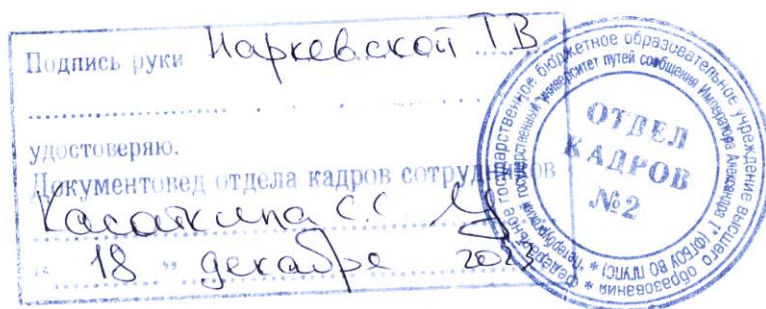 Подпись руки Наркевской Т.В.
удостоверяю.
Документовед отдела кадров сотрудников
Касаткина С.С.
" 18 " декабря 2023
Федеральное государственное бюджетное образовательное учреждение высшего образования *
Петербургский государственный университет путей сообщения Императора Александра I" (ФГБОУ ВО ПГУПС) *
ОТДЕЛ
КАДРОВ
№2